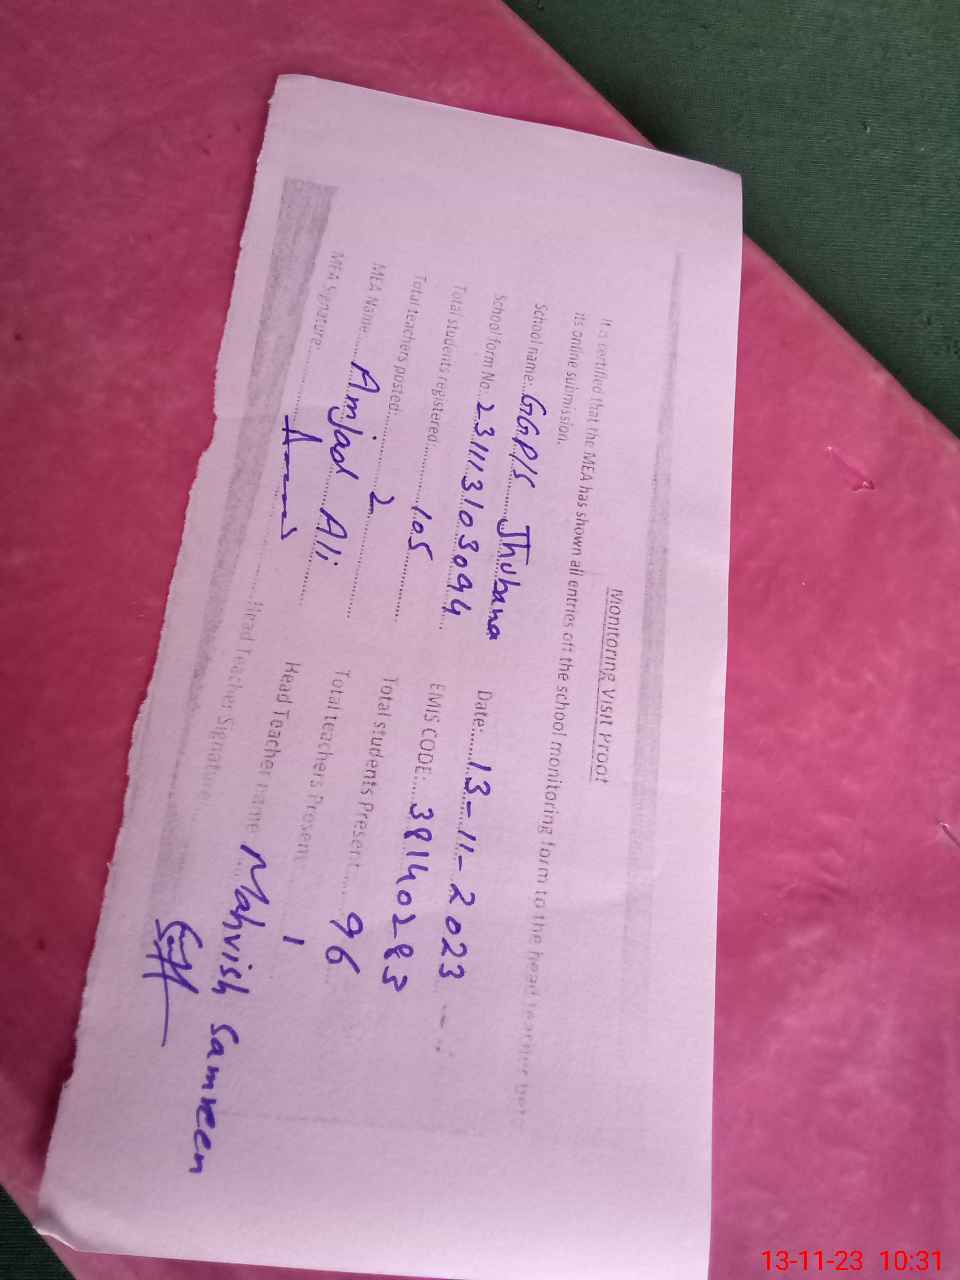 Monitoring Visit Proof
It is certified that the MEA has shown all entries off the school monitoring form to the head teacher
its online submission.
School name: GGP/S Jhubana Date: 13-11-2023
School form No. 231113103094 EMIS CODE: 38140283
Total students registered: 105 Total students Present 96
Total teachers posted: 2 Total teachers Present 1
MEA Name: Amjad Ali Head Teacher name Mahvish Samreen
MEA Signature: Head Teacher Signature
13-11-23 10:31